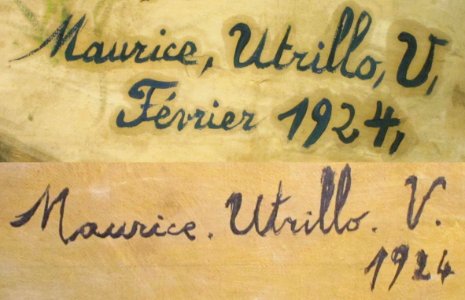 Maurice, Utrillo, V,
Février 1924,
Maurice. Utrillo. V.
1924